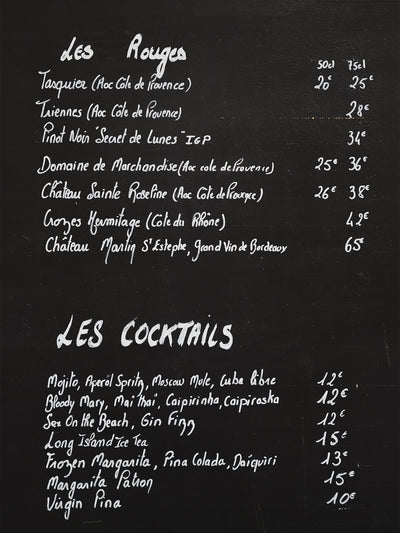 Les Rouges
50cl 75cl
Tasquier (Aoc Côte de Provence) 20€ 25€
Triennes (Aoc Côte de Provence) 28€
Pinot Noir "Secret de Lunes" IGP 34€
Domaine de Marchandise (Aoc cote de Provence) 25€ 36€
Château Sainte Roseline (Aoc Côte de Provence) 26€ 38€
Crozes Hermitage (Cote du Rhône) 42€
Château Martin St Estephe, grand Vin de Bordeaux 65€
LES COCKTAILS
Mojito, Aperol Spritz, Moscow Mule, Cuba libre 12€
Bloody Mary, Mai thai, Caipirinha, Caipiroska 12€
Sex On the Beach, Gin Fizz 12€
Long Island Ice Tea 15€
Frozen Margarita, Pina Colada, Daïquiri 13€
Margarita Patron 15€
Virgin Pina 10€